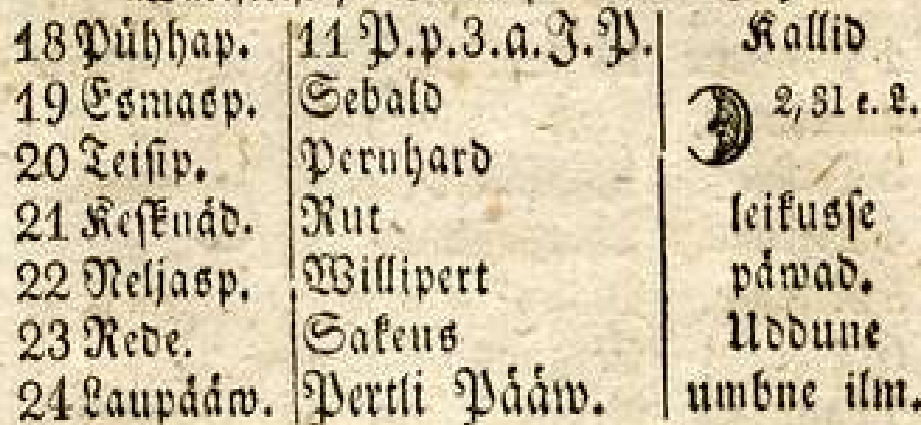 18 Pühhap. 11 P.p.3.a.J.P. Kallid
19 Esmasp. Sebald 2,31 e. L.
20 Teisip. Pernhard
21 Keſknäd. Rut leikusſe
22 Neljasp. Willipert päwad.
23 Rede. Sakeus Uddune
24 Laupääw. Pertli Pääw. umbne ilm.